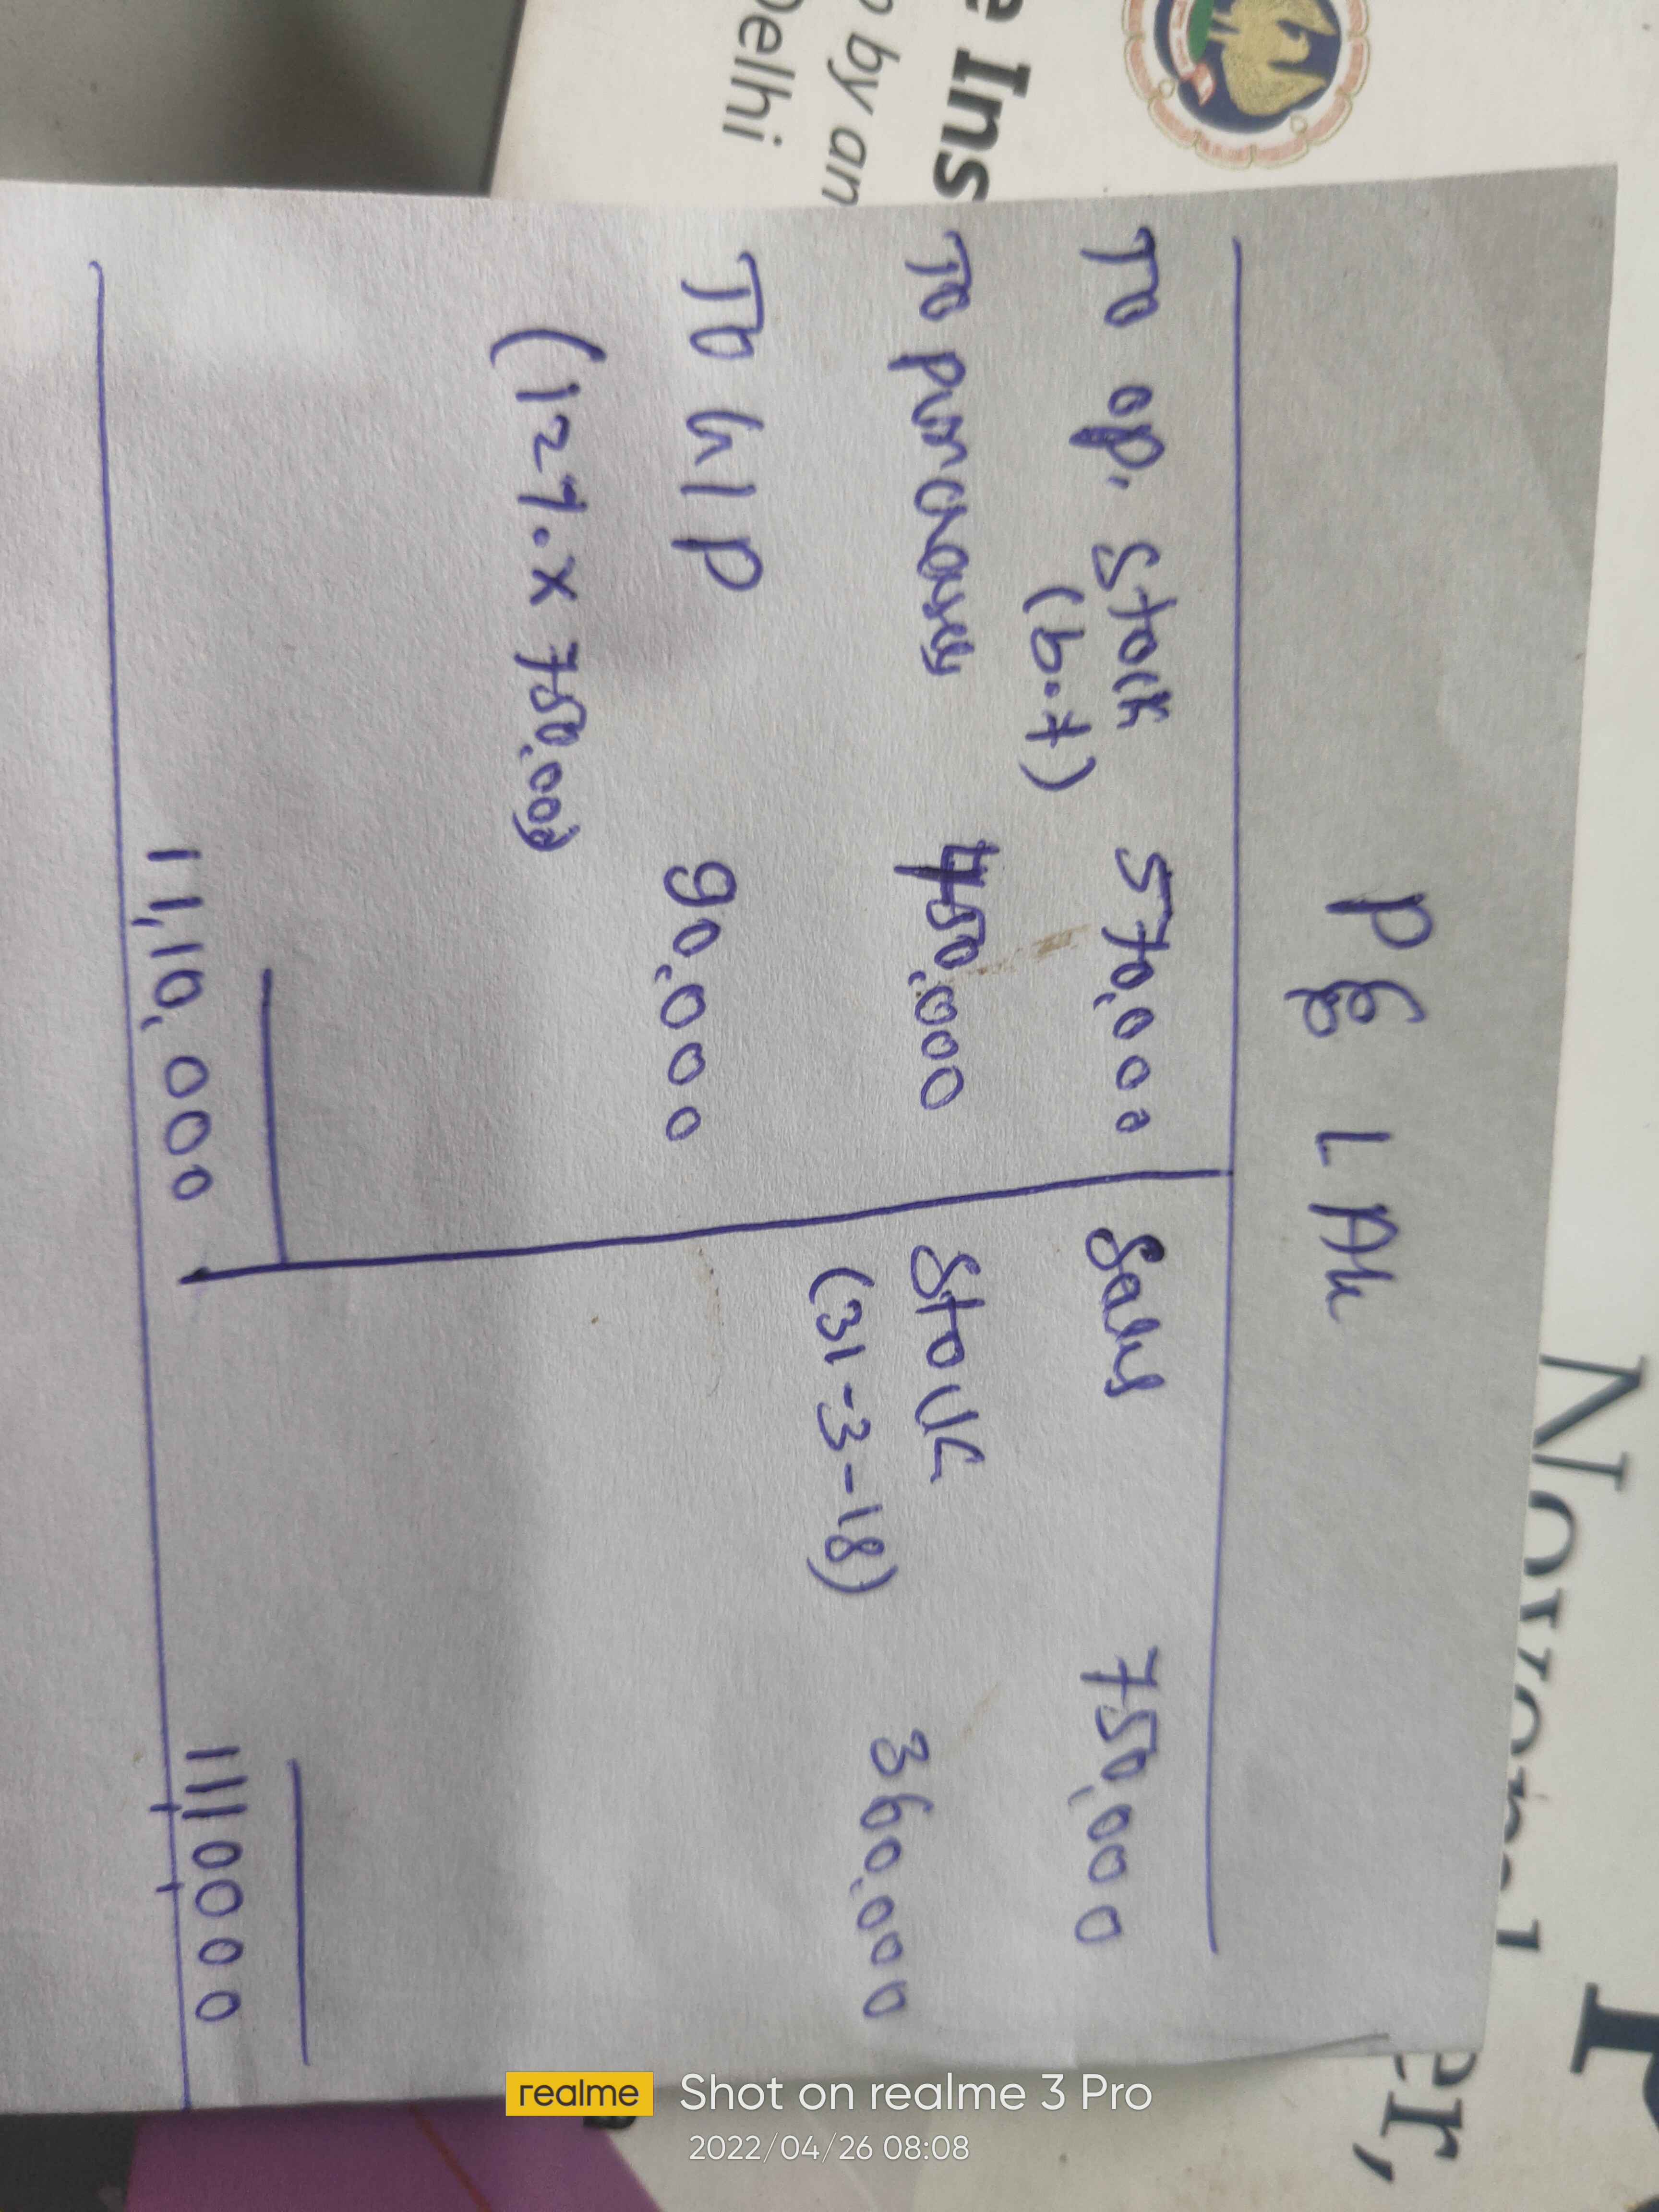 P & L A/c
To op. Stock 570,000
(b.f)
To purchases 450,000
To G/P 90,000
(12%. x 750,000)
11,10,000
Sales 750,000
Stock
(31-3-18) 360,000
1110000
e Ins
by an
Delhi
er,
realme Shot on realme 3 Pro
2022/04/26 08:08